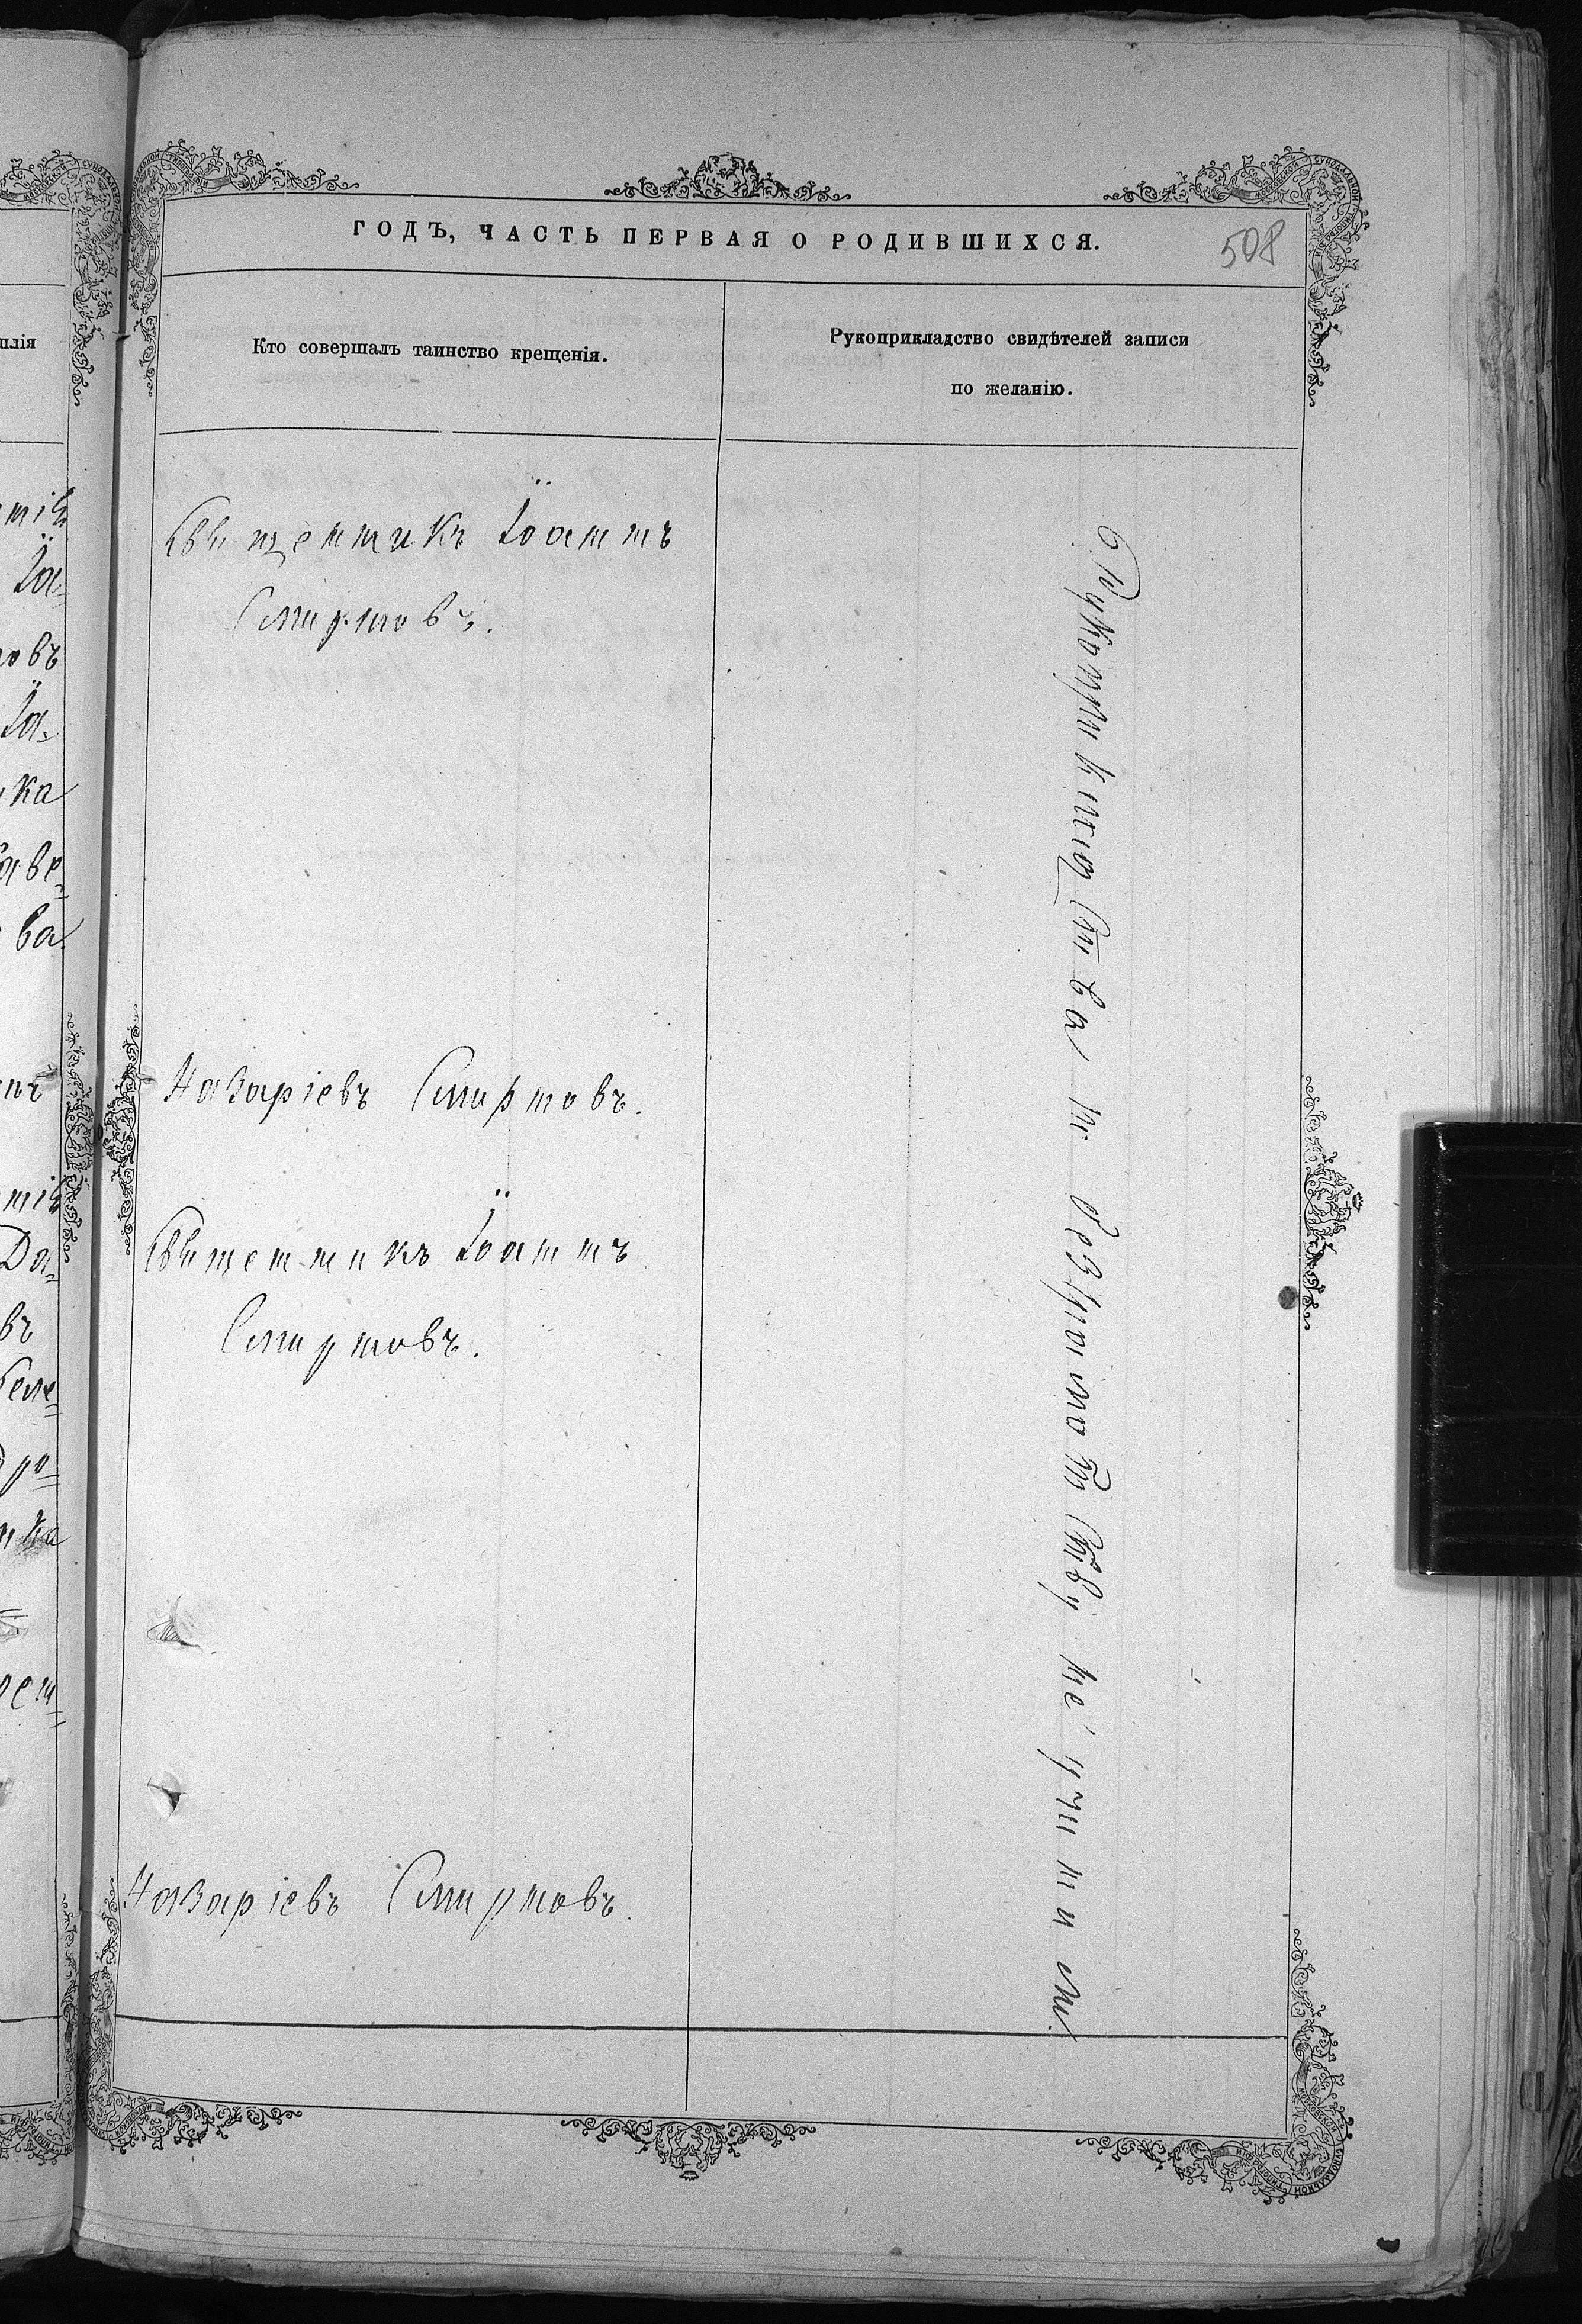 ГОДЪ, ЧАСТЬ ПЕРВАЯ О РОДИВШИХСЯ.
508
Кто совершалъ таинство крещенія.
Рукоприкладство свидѣтелей записи
по желанію.
Священникъ Іоаннъ
Смирновъ.
Назаріевъ Смирновъ.
Священникъ Іоаннъ
Смирновъ.
Назаріевъ Смирновъ.
Рукоприкладства по безграмотству не учинили.
плія
тій
Іа-
новъ
Іа-
ка
аве-
ва
тій
Да-
въ
ро-